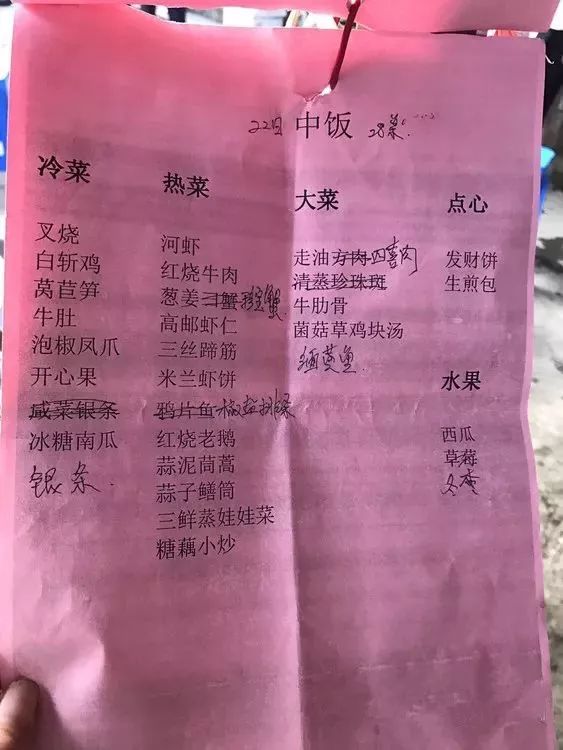 22日 中饭 28菜
冷菜
叉烧
白斩鸡
莴苣笋
牛肚
泡椒凤爪
开心果
咸菜银条
冰糖南瓜
银条
热菜
河虾
红烧牛肉
葱姜
高邮虾仁
三丝蹄筋
米兰虾饼
鸦片鱼 椒盐排条
红烧老鹅
蒜泥茼蒿
蒜子鳝筒
三鲜蒸娃娃菜
糖藕小炒
大菜
走油方肉 四喜肉
清蒸珍珠斑
牛肋骨
菌菇草鸡块汤
点心
发财饼
生煎包
水果
西瓜
草莓
冬枣